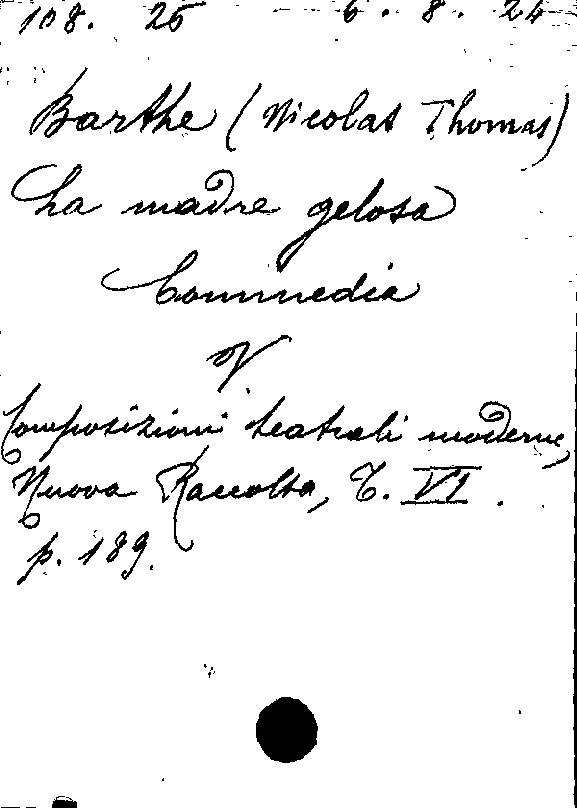 108. 25 6. 8. 24
Barthe (Nicolas Thomas)
La madre gelosa
Commedia
V.
Composizioni teatrali moderne,
Nuova Raccolta, T. VI.
p. 189.